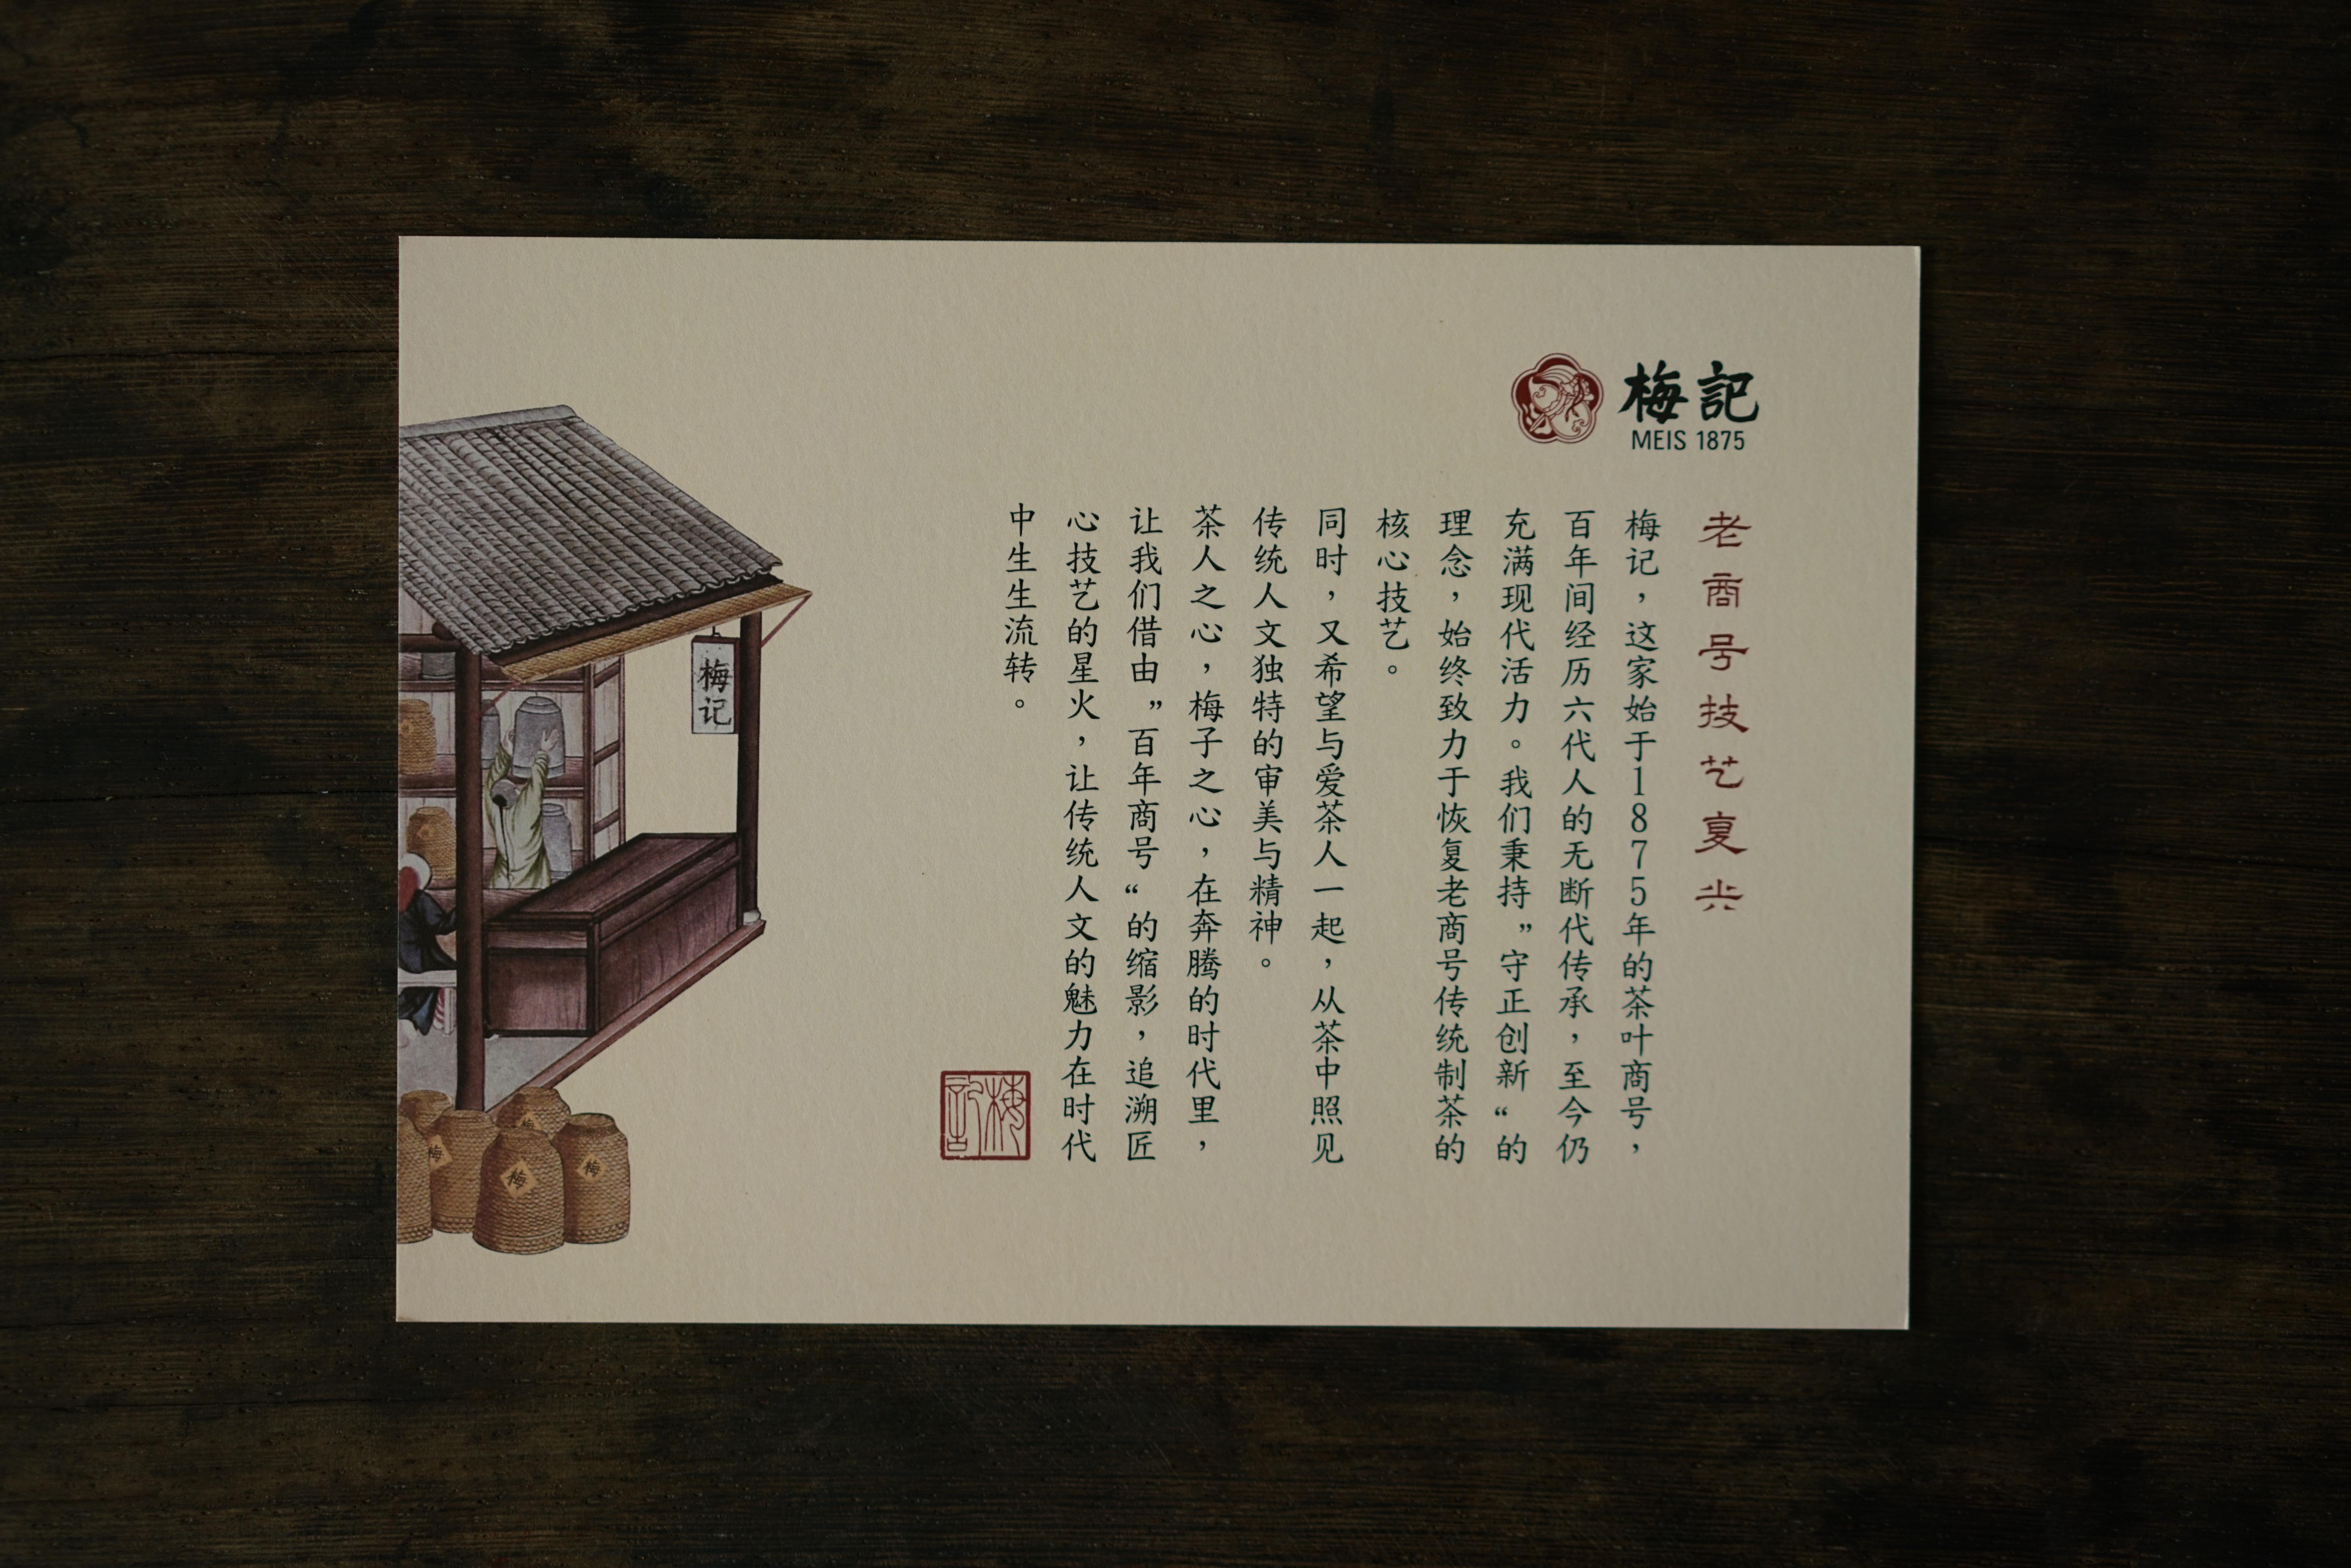 梅記
MEIS 1875
老商号技艺复兴
梅记，这家始于1875年的茶叶商号，
百年间经历六代人的无断代传承，至今仍
充满现代活力。我们秉持”守正创新“的
理念，始终致力于恢复老商号传统制茶的
核心技艺。
同时，又希望与爱茶人一起，从茶中照见
传统人文独特的审美与精神。
茶人之心，梅子之心，在奔腾的时代里，
让我们借由”百年商号“的缩影，追溯匠
心技艺的星火，让传统人文的魅力在时代
中生生流转。
梅記
梅记
梅
梅
梅
梅